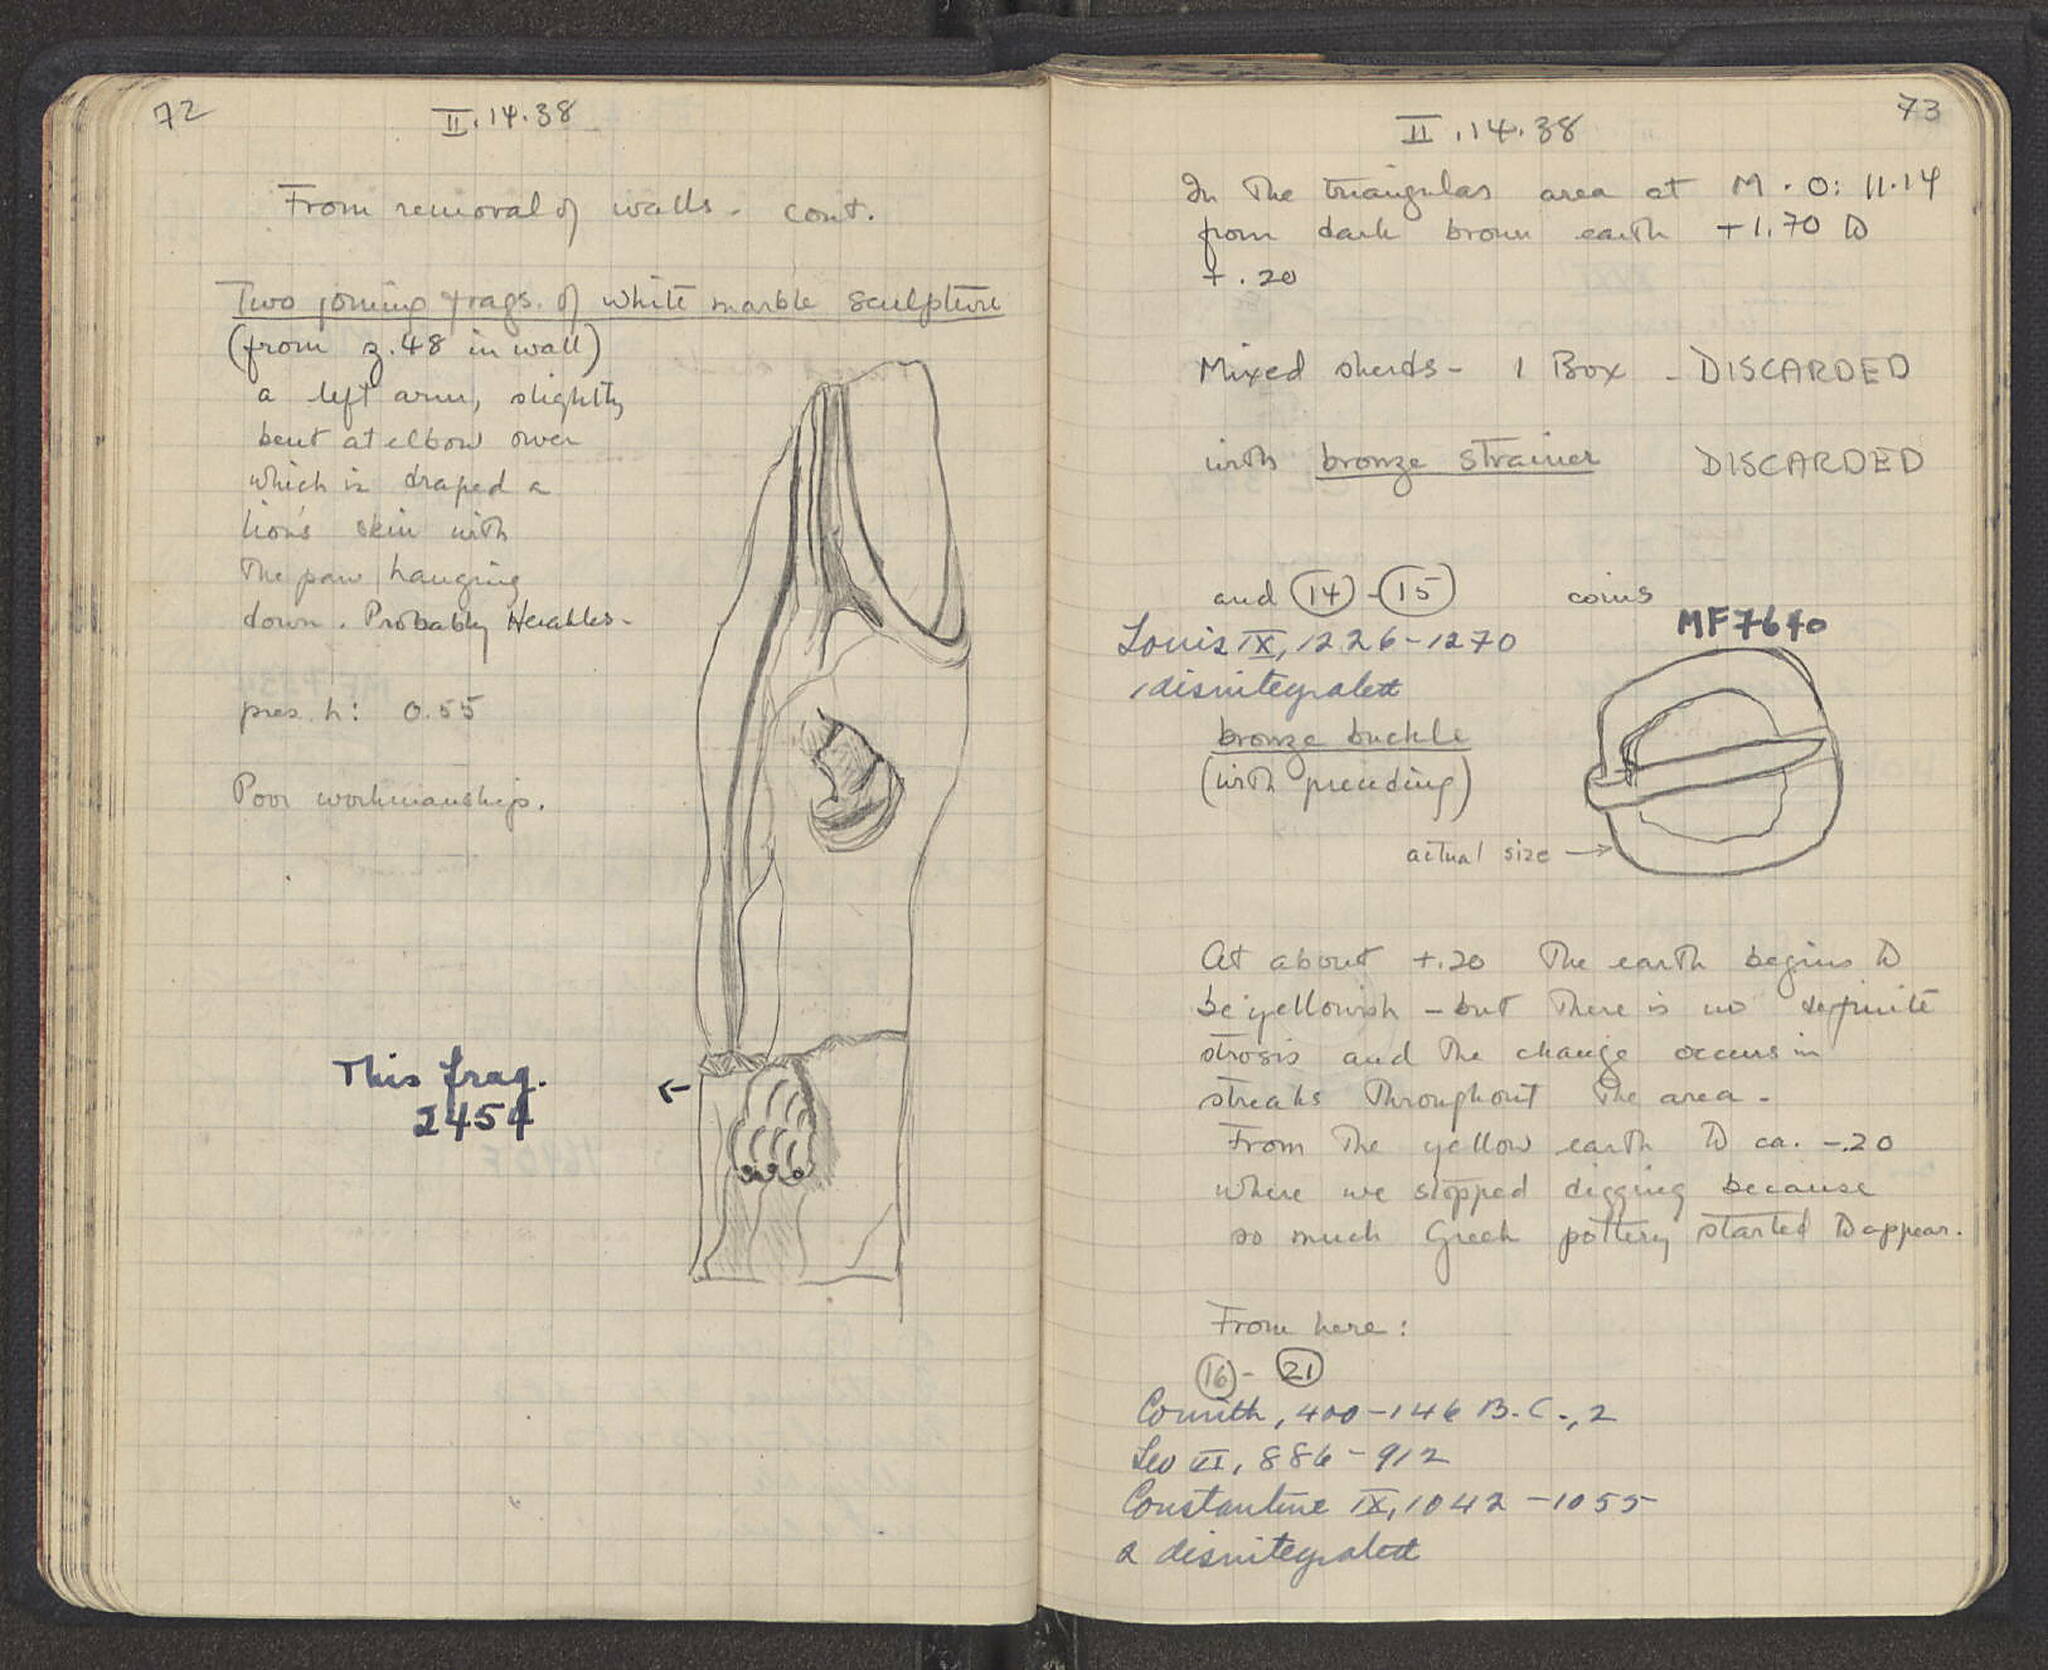 72
II.14.38
From removal of walls - cont.
Two joining frags. of white marble sculpture
(from z.48 in wall)
a left arm, slightly
bent at elbow over
which is draped a
lion's skin with
the paw hanging
down. Probably Herakles.
pres. h: 0.55
Poor workmanship.
This frag.
2454
73
II.14.38
In the triangular area at M.O: 11.14
from dark brown earth +1.70 to
+.20
Mixed sherds - 1 Box - DISCARDED
with bronze strainer DISCARDED
and 14 - 15 coins
Louis IX, 1226-1270
1 disintegrated
MF7640
bronze buckle
(with preceding)
actual size →
At about +.20 the earth begins to
be yellowish - but there is no definite
strosis and the change occurs in
streaks throughout the area -
From the yellow earth to ca. -.20
where we stopped digging because
so much Greek pottery started to appear.
From here:
16 - 21
Corinth, 400-146 B.C., 2
Leo VI, 886-912
Constantine IX, 1042-1055
2 disintegrated